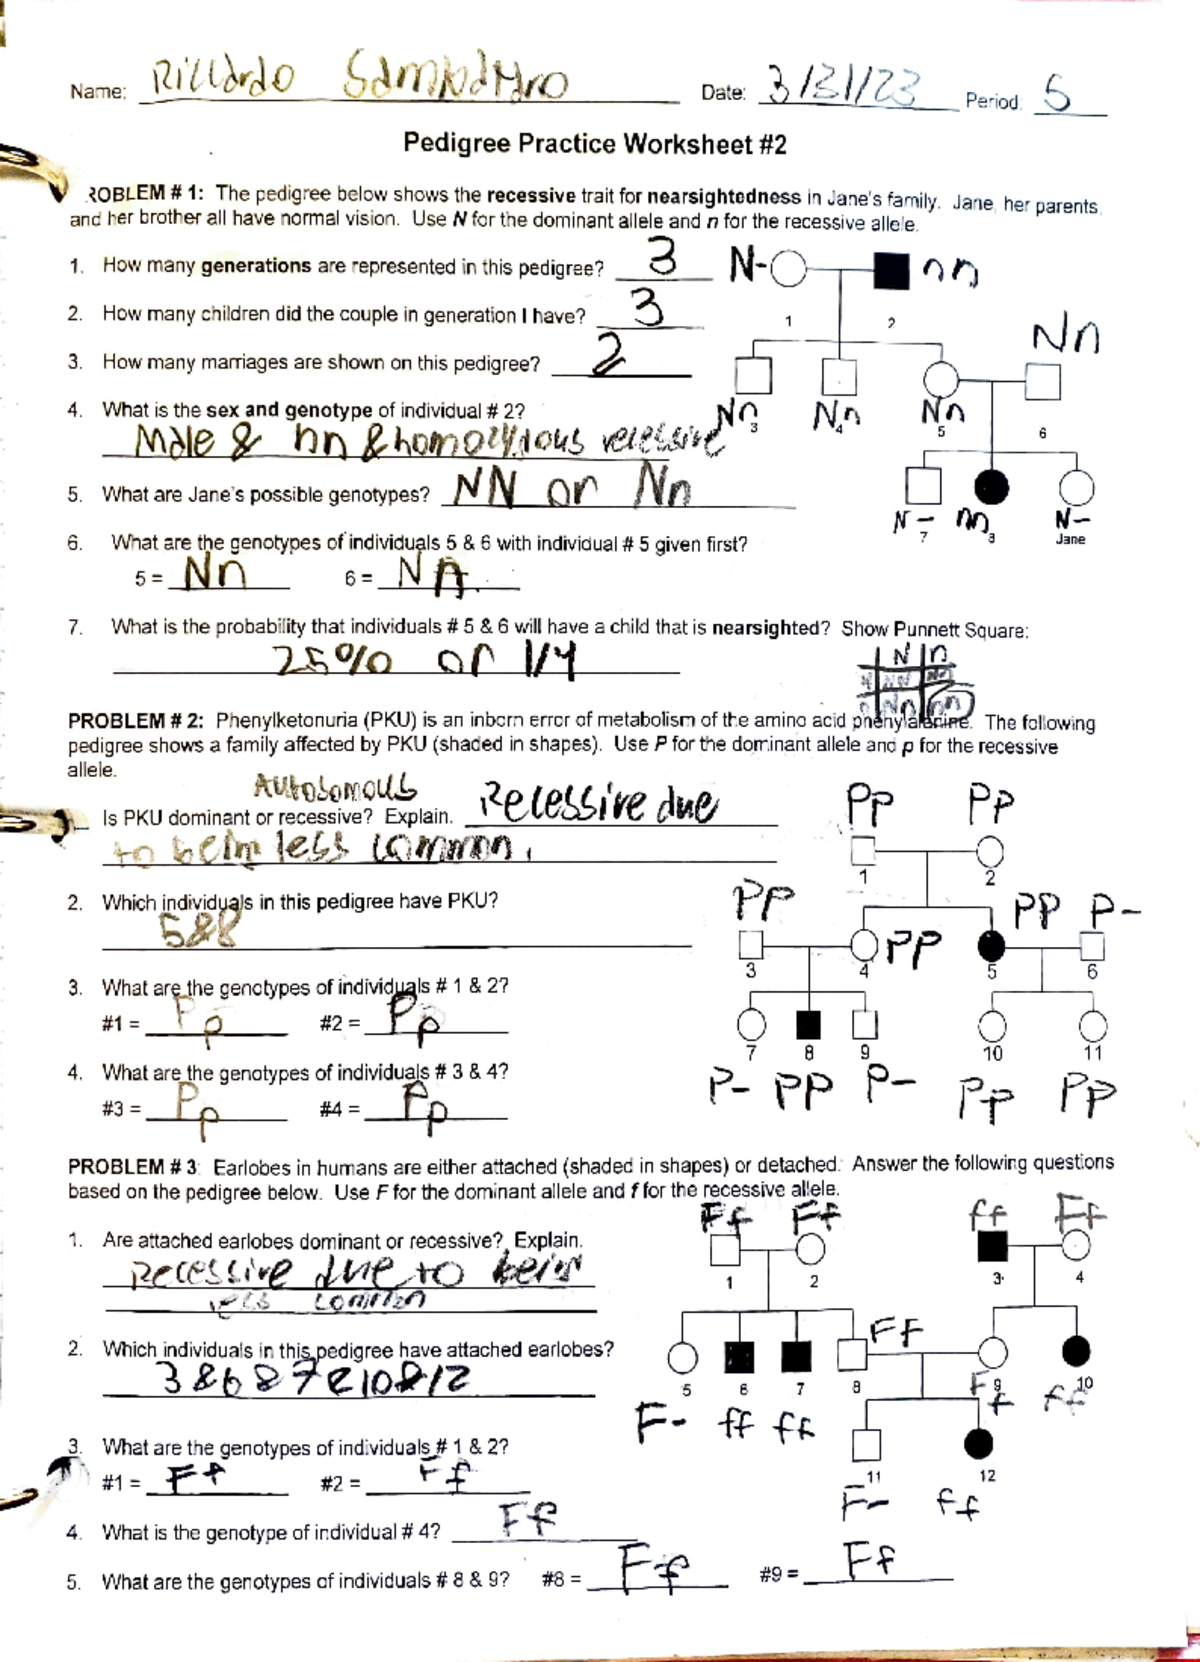 Name: Riccardo Date: 3/31/23 Period: 5
Pedigree Practice Worksheet #2
ROBLEM # 1: The pedigree below shows the recessive trait for nearsightedness in Jane's family. Jane, her parents,
and her brother all have normal vision. Use N for the dominant allele and n for the recessive allele.
1. How many generations are represented in this pedigree? 3
N- nn
2. How many children did the couple in generation I have? 3
1 2
Nn
3. How many marriages are shown on this pedigree? 2
4. What is the sex and genotype of individual # 2?
Nn 3 Nn 4 Nn 5 6
Male & nn & homozygous recessive
5. What are Jane's possible genotypes? NN or Nn
N- 7 nn 8 N- Jane
6. What are the genotypes of individuals 5 & 6 with individual # 5 given first?
5 = Nn 6 = Nn
7. What is the probability that individuals # 5 & 6 will have a child that is nearsighted? Show Punnett Square:
25% or 1/4
N n
N NN Nn
n Nn nn
PROBLEM # 2: Phenylketonuria (PKU) is an inborn error of metabolism of the amino acid phenylalanine. The following
pedigree shows a family affected by PKU (shaded in shapes). Use P for the dominant allele and p for the recessive
allele.
Autosomous
Is PKU dominant or recessive? Explain. Recessive due
to being less common.
Pp Pp
1 2
2. Which individuals in this pedigree have PKU?
5&8
Pp Pp pp P-
3 4 5 6
3. What are the genotypes of individuals # 1 & 2?
#1 = Pp #2 = Pp
7 8 9 10 11
4. What are the genotypes of individuals # 3 & 4?
P- pp P- Pp Pp
#3 = Pp #4 = Pp
PROBLEM # 3: Earlobes in humans are either attached (shaded in shapes) or detached. Answer the following questions
based on the pedigree below. Use F for the dominant allele and f for the recessive allele.
Ff Ff ff Ff
1. Are attached earlobes dominant or recessive? Explain.
Recessive due to being
less common
1 2 3 4
2. Which individuals in this pedigree have attached earlobes?
Ff
3&6&7&10&12
5 6 7 8 9 10
F- ff ff Ff ff
3. What are the genotypes of individuals # 1 & 2?
#1 = Ff #2 = Ff
11 12
F- ff
4. What is the genotype of individual # 4? Ff
5. What are the genotypes of individuals # 8 & 9? #8 = Ff #9 = Ff